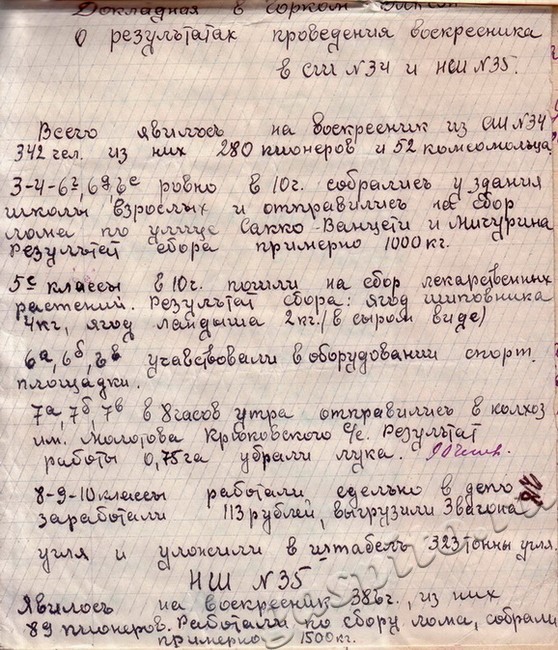 Докладная в горком
О результатах проведения воскресника
в СШ N34 и НСШ N35.
Всего явилось на воскресник из СШ N34
342 чел. из них 280 пионеров и 52 комсомольца
3-4-6г, 6д, 6е ровно в 10 г. собрались у здания
школы взрослых и отправились на сбор
лома по улице Сакко-Ванцети и Мичурина
Результат сбора примерно 1000 кг.
5е классы в 10 г. пошли на сбор лекарственных
растений. Результат сбора: ягод шиповника
4 кг, ягод ландыша 2 кг. (в сыром виде)
6а, 6б, 6в учавствовали в оборудовании спорт.
площадки.
7а, 7б, 7в в 8 часов утра отправились в колхоз
им. Молотова Крюковского с/с. Результат
работы 0,75 га убрали лука. 90 чел.
8-9-10 классы работали сдельно в депо
заработали 113 рублей, выгрузили 3 вагона
угля и уложили в штабель 323 тонны угля.
НСШ N35
Явилось на воскресник 386 г., из них
89 пионеров. Работали по сбору лома, собрали
примерно 1500 кг.